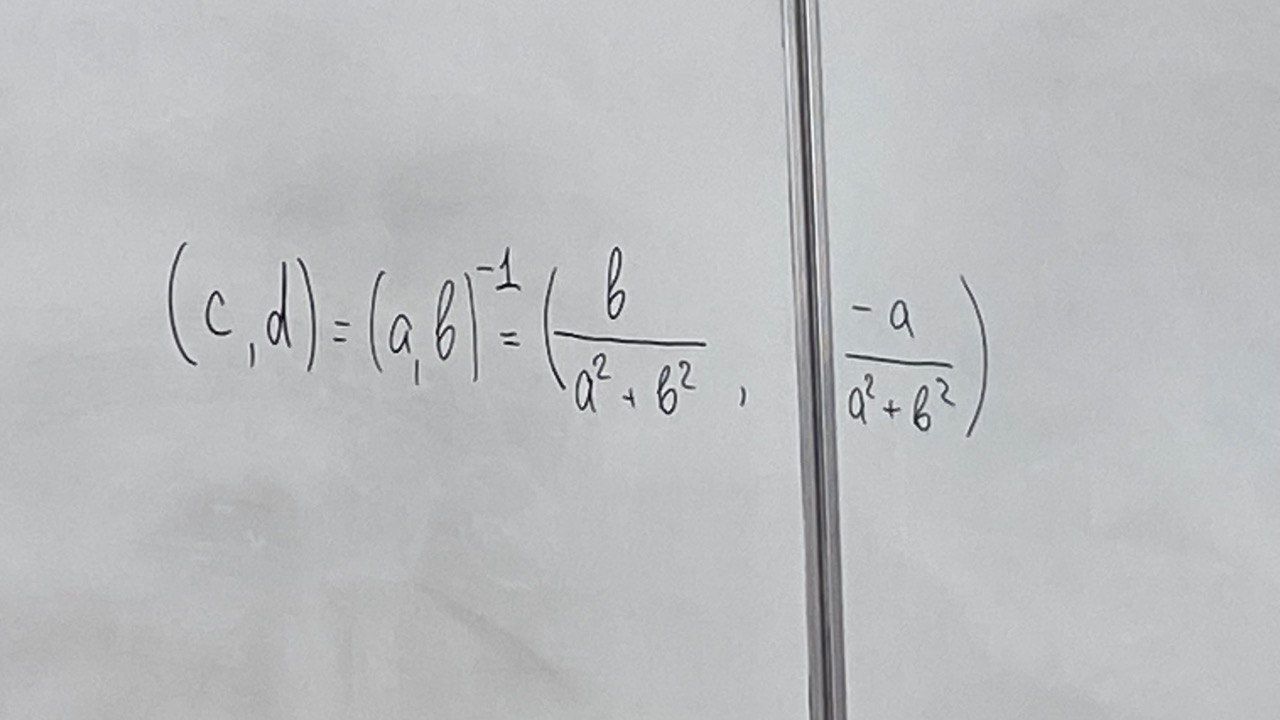 (c, d) = (a, b)^{-1} = (\frac{b}{a^2 + b^2}, \frac{-a}{a^2 + b^2})